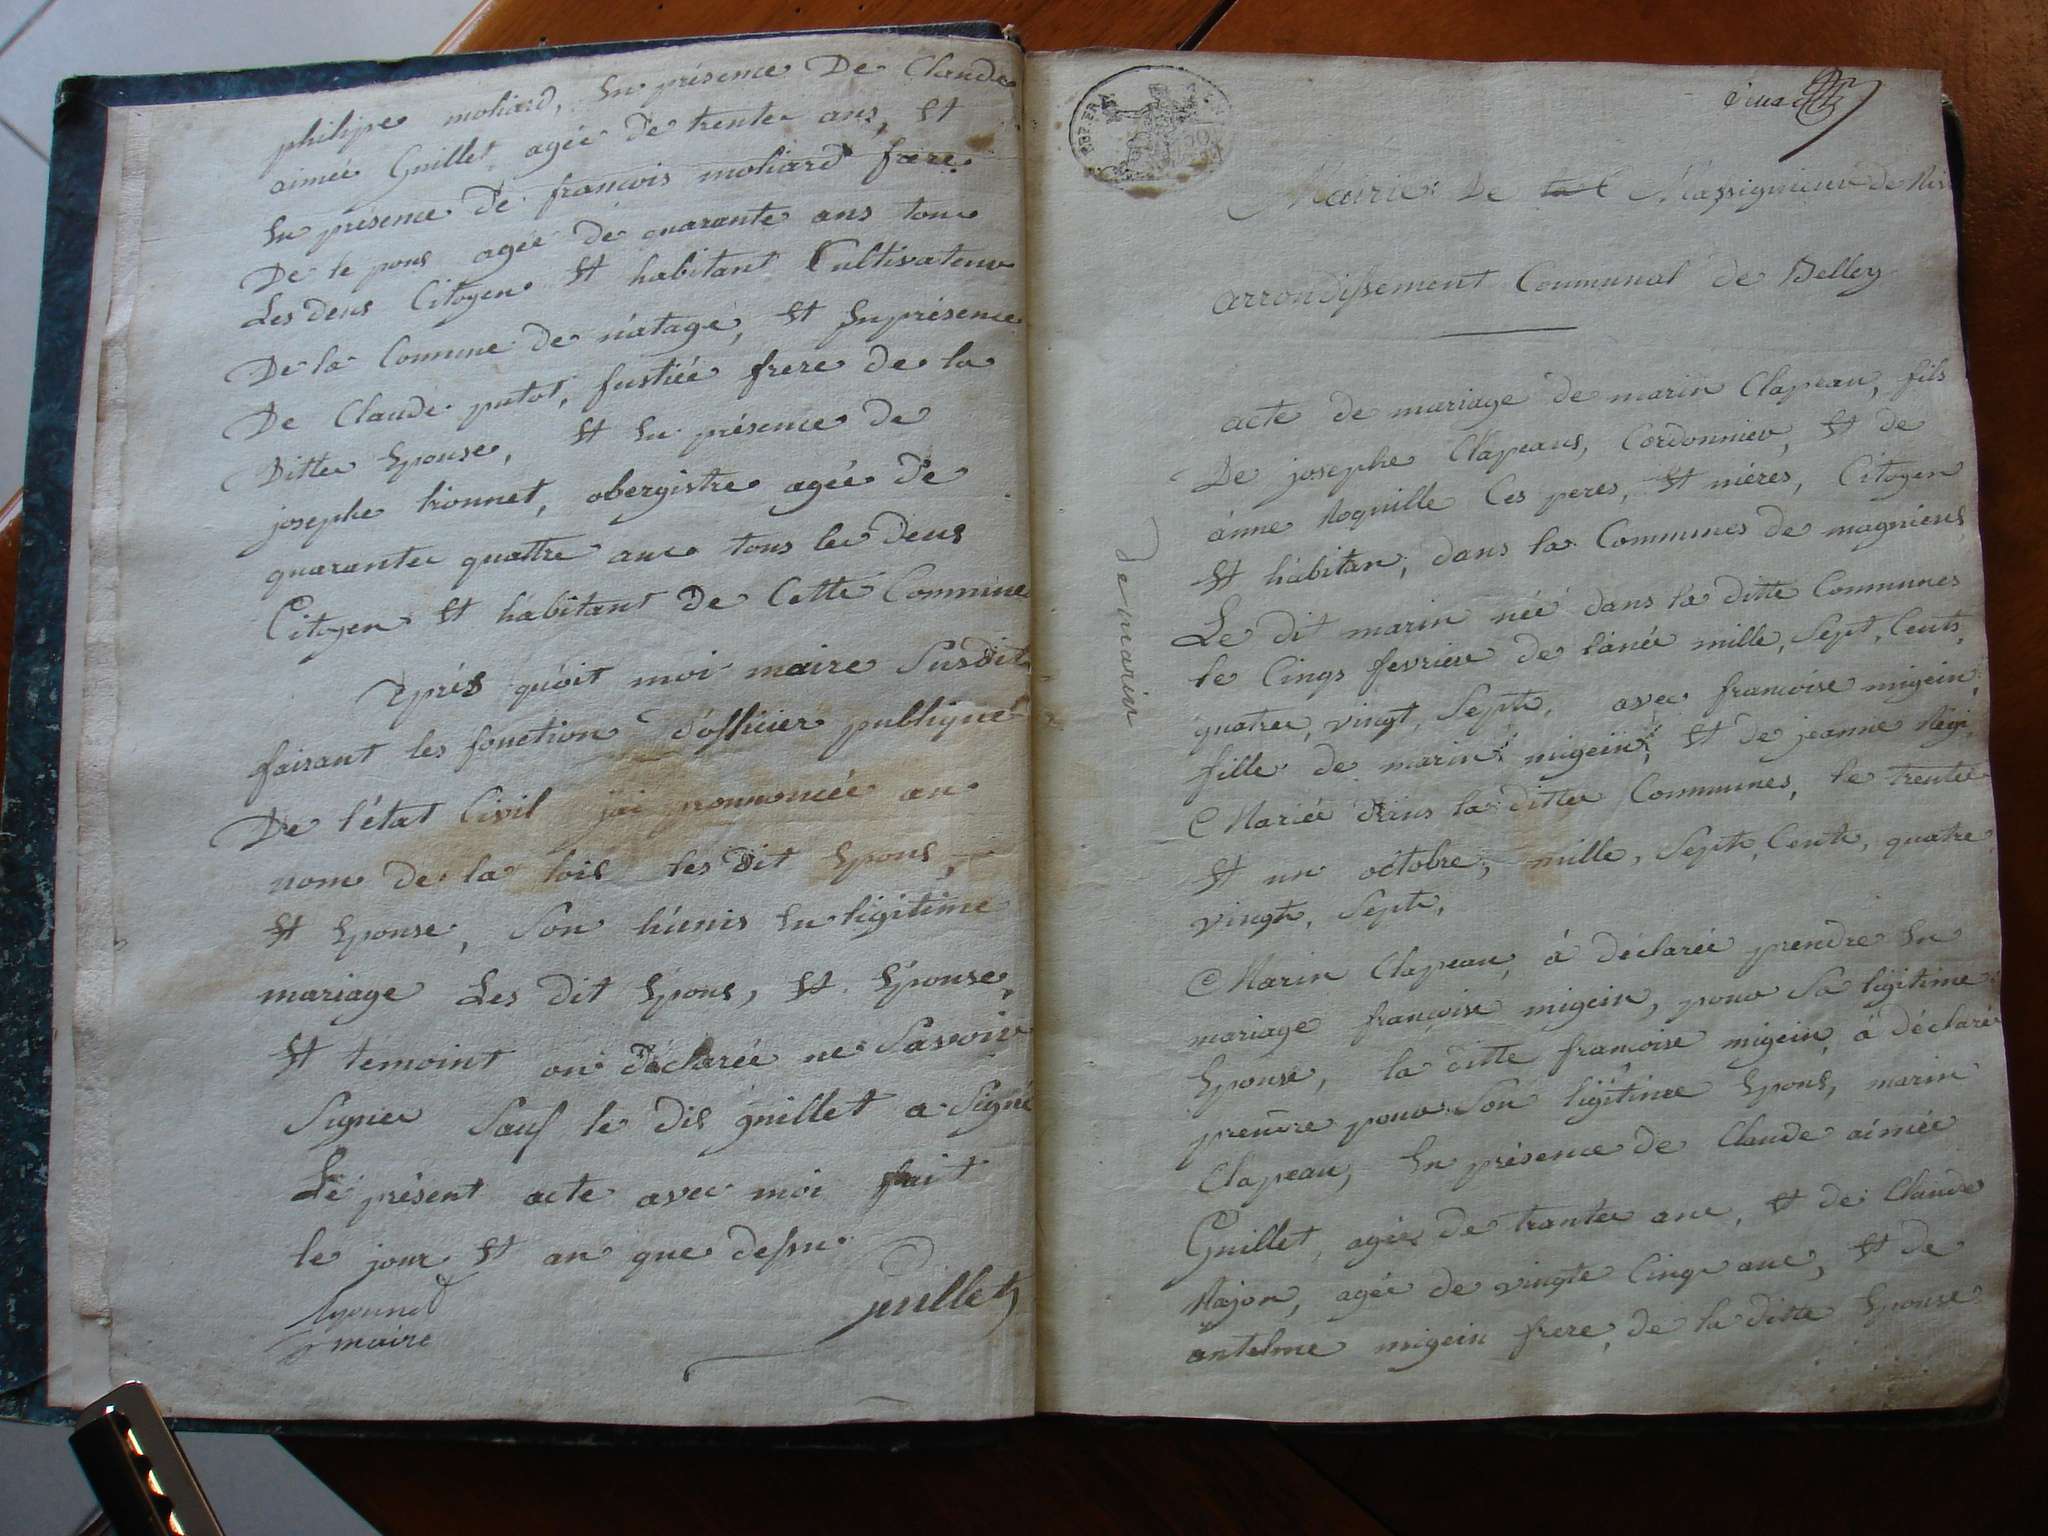 philipe moliard, En présence De Claude
aimée Guillet agée de trente ans, Et
En présence de francois moliard frere
De le pous agée de quarante ans tous
Les deus Citoyen Et habitant Cultivateur
De la Commune de natage, Et En présence
De Claude putot, fustiée frere de la
Ditte Epouse, Et En présence de
josephe bonnet, obergistre agée de
quarante quattre ans tous les deus
Citoyen Et habitant De Cette Commune
Eprés quoit moi maire Susdit
faisant les fonction d'officier publique
De l'état Civil j'ai prononcée au
nom de la lois les dit Epous,
Et Epouse, Son hunis En ligitime
mariage Les dit Epous, Et Epouse,
Et temoint on déclarée ne Savoir
Signer Sauf le dit guillet a Signé
Le présent acte avec moi fait
le jour Et an que dessu
maire
guillet
Mairie De Massignieu de Rive
arrondissement Communal de Belley
acte de mariage de marin Clapeau, fils
De josephe Clapeaus, Cordonnier, Et de
anne Roquille Ces peres, Et méres, Citoyen
Et habitan, dans la Communes de magnieus
Le dit marin née dans la ditte Communes
le Cinqs fevrier de l'anée mille, Sept, Cents,
quatre, vingt, Septe, avec francoise migein,
fille de marin migein, Et de jeanne Régi
Mariée dans la ditte Communes, le trente
Et un octobre, mille, Septe, Cente, quatre
vingte, Septe,
de marin
Marin Clapeau à déclarée prendre En
mariage françoise migein, pour Sa ligitime
Epouse, la ditte francoise migein à déclarée
prendre pour Son ligitime Epous, marin
Clapeau, En présence de Claude aimée
Guillet, agée de trante ans, Et de Claude
Rajon, agée de vingte Cinq ans, Et de
antelme migein frere de la ditte Epouse